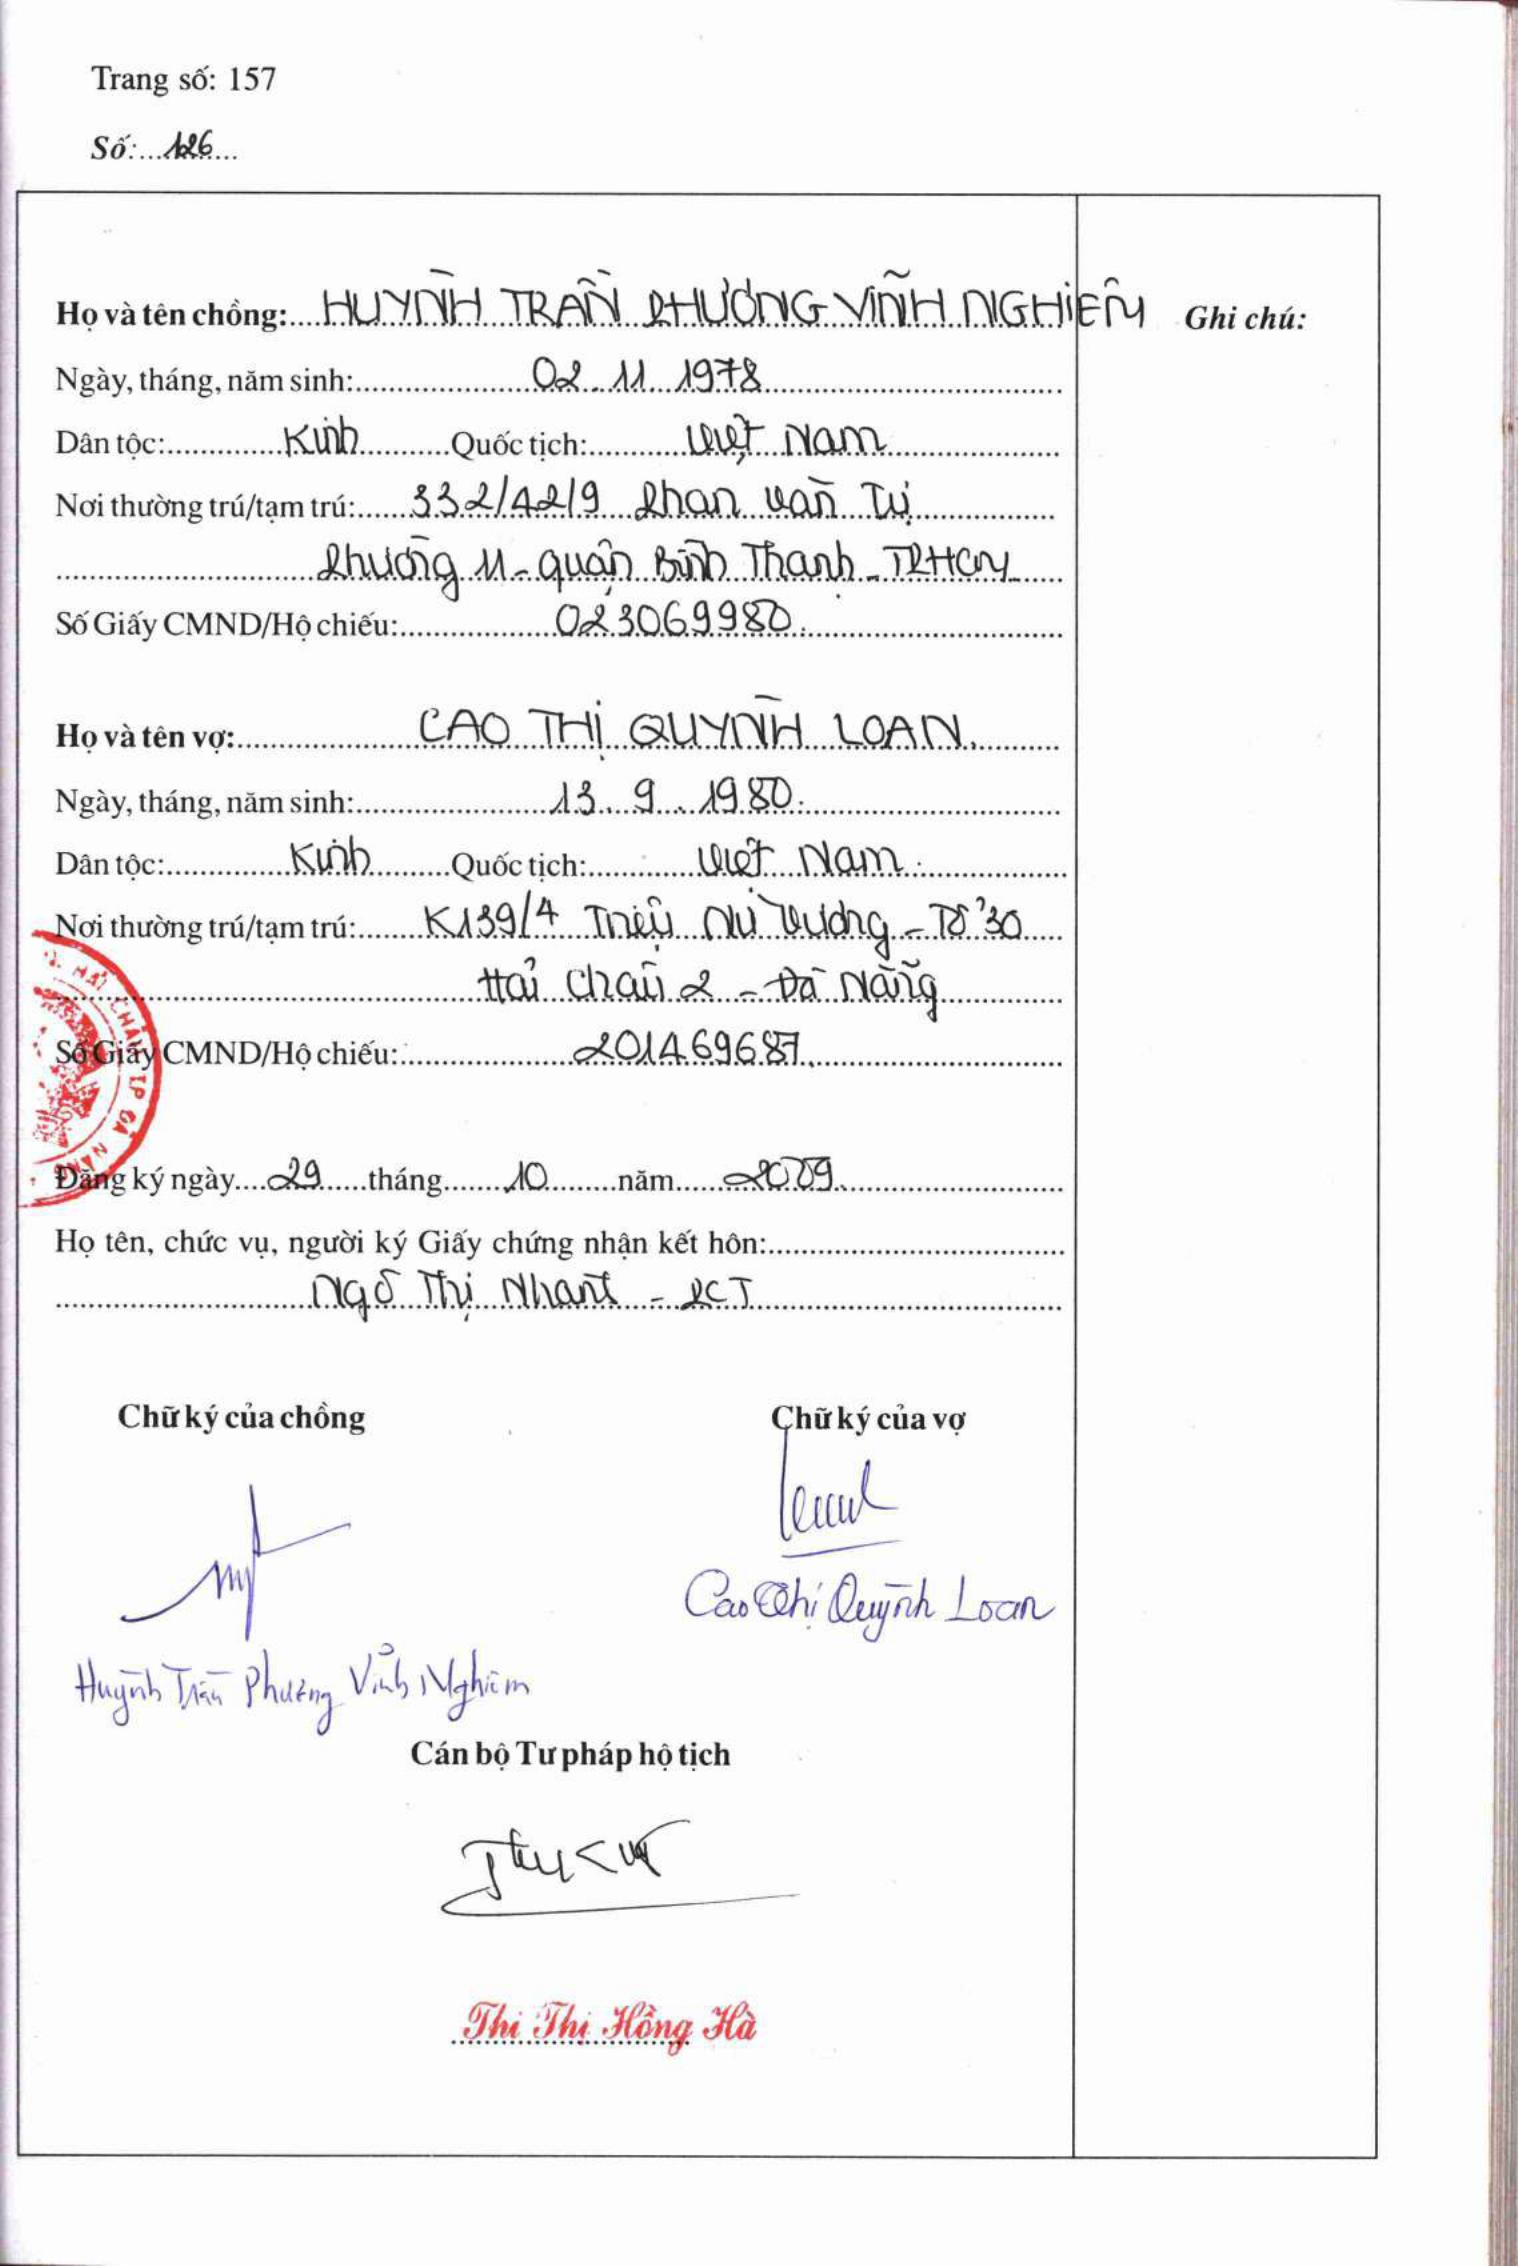 Trang số: 157
Số: 126
Họ và tên chồng: HUỲNH TRẦN PHƯƠNG VĨNH NGHIÊM
Ghi chú:
Ngày, tháng, năm sinh: 02.11.1978
Dân tộc: Kinh Quốc tịch: Việt Nam
Nơi thường trú/tạm trú: 332/42/9 Phan Văn Trị
Phường 11 - quận Bình Thạnh - TPHCM
Số Giấy CMND/Hộ chiếu: 023069980
Họ và tên vợ: CAO THỊ QUỲNH LOAN
Ngày, tháng, năm sinh: 13.9.1980
Dân tộc: Kinh Quốc tịch: Việt Nam
Nơi thường trú/tạm trú: K139/4 Triệu Nữ Vương - Tổ 30
Hải Châu 2 - Đà Nẵng
Số Giấy CMND/Hộ chiếu: 201469687
HẢI CHÂU TP ĐÀ NẴNG
Đăng ký ngày 29 tháng 10 năm 2009
Họ tên, chức vụ, người ký Giấy chứng nhận kết hôn:
Ngô Thị Nhant - PCT
Chữ ký của chồng Chữ ký của vợ
Cao Thị Quỳnh Loan
Huỳnh Trần Phương Vĩnh Nghiêm
Cán bộ Tư pháp hộ tịch
Thi Thị Hồng Hà